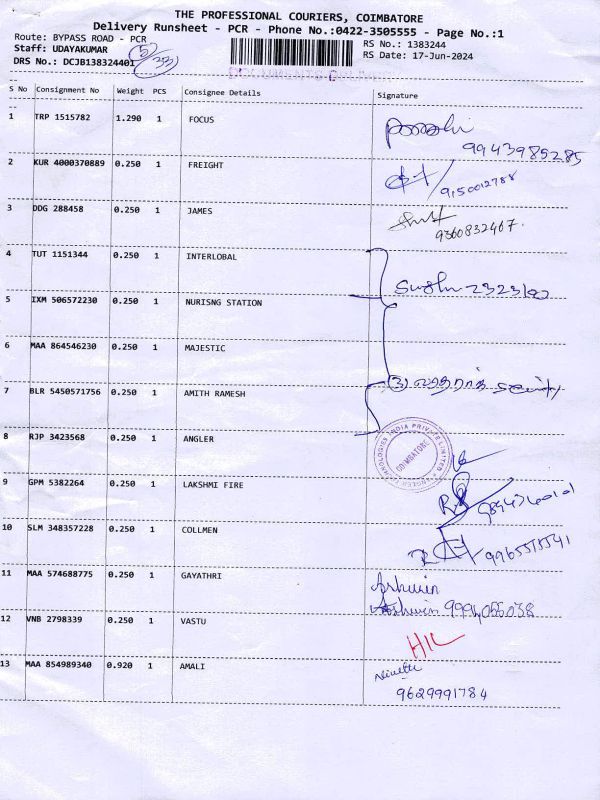 THE PROFESSIONAL COURIERS, COIMBATORE
Delivery Runsheet - PCR - Phone No.:0422-3505555 - Page No.:1
Route: BYPASS ROAD - PCR
RS No.: 1383244
Staff: UDAYAKUMAR
RS Date: 17-Jun-2024
DRS No.: DCJB138324401
S No Consignment No Weight PCS Consignee Details Signature
1 TRP 1515782 1.290 1 FOCUS
9943985285
2 KUR 4000370889 0.250 1 FREIGHT
9150012788
3 DDG 288458 0.250 1 JAMES
9360832467.
4 TUT 1151344 0.250 1 INTERLOBAL
5 IXM 506572230 0.250 1 NURISNG STATION
6 MAA 864546230 0.250 1 MAJESTIC
7 BLR 5450571756 0.250 1 AMITH RAMESH
8 RJP 3423568 0.250 1 ANGLER
COIMBATORE
9 GPM 5382264 0.250 1 LAKSHMI FIRE
10 SLM 348357228 0.250 1 COLLMEN
11 MAA 574688775 0.250 1 GAYATHRI
Ashwin
Ashwin
12 VNB 2798339 0.250 1 VASTU
13 MAA 854989340 0.920 1 AMALI
9629991784